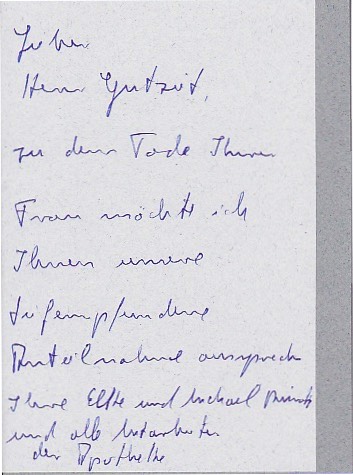 Lieber
Herr Gutzeit,
zu dem Tode Ihrer
Frau möchte ich
Ihnen unsere
tiefempfundene
Anteilnahme aussprechen
Ihre Elke und Michael
und alle Mitarbeiter
der Apotheke